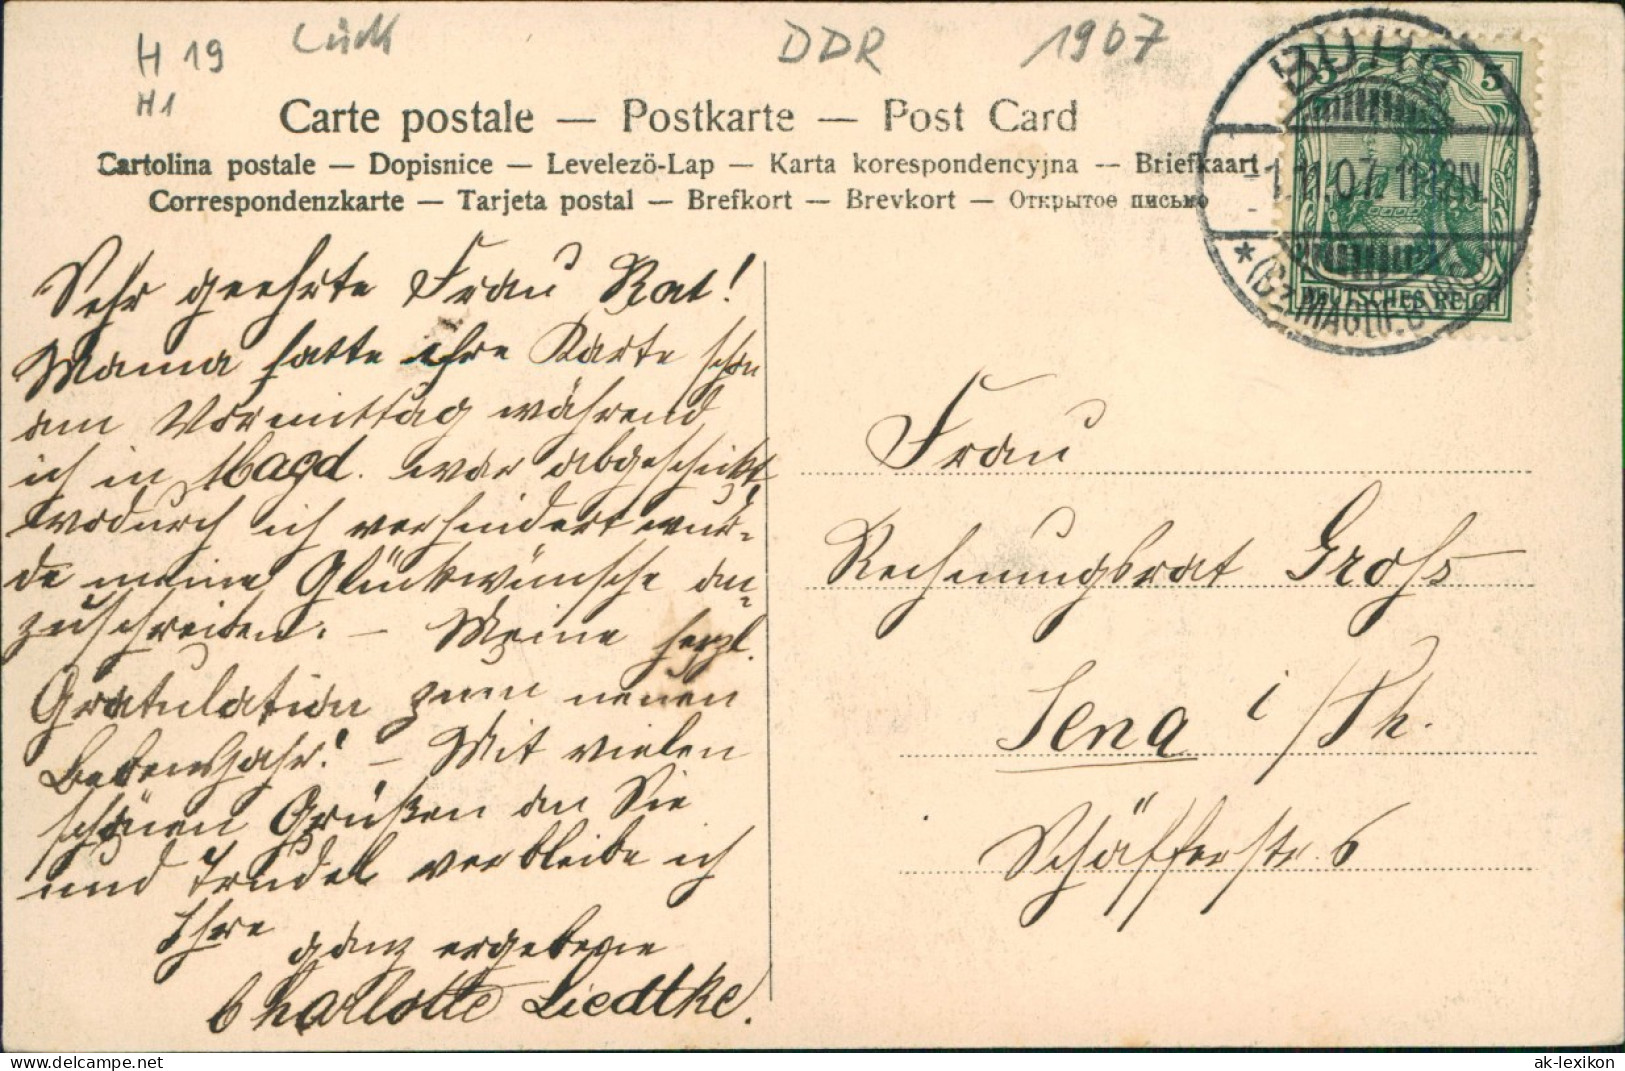 H 19 Lück DDR 1907
H1
Carte postale — Postkarte — Post Card
Cartolina postale — Dopisnice — Levelezö-Lap — Karta korespondencyjna — Briefkaart
Correspondenzkarte — Tarjeta postal — Brefkort — Brevkort — Открытое письмо
BURG
-1.11.07. 11-12N.
* (Bz. MAGDEBURG) *
5 5
DEUTSCHES REICH
Sehr geehrte Frau Rat!
Mama hatte ihre Karte schon
am Vormittag während
ich in Magd. war abgeschickt
wodurch ich verhindert wur-
de meine Glückwünsche an-
zuschreiben. – Meine herzl.
Gratulation zum neuen
Lebensjahr! – Mit vielen
schönen Grüßen an Sie
und Trudel verbleibe ich
Ihre
ganz ergebene
Charlotte Liedtke.
Frau
Rechnungsrat Groß
Jena i/Th.
Schäfferstr. 6
www.delcampe.net
ak-lexikon